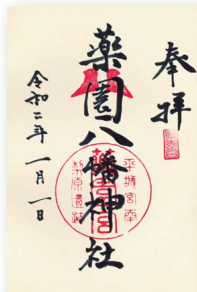 奉拝
薬園八幡神社
令和二年一月一日
平城宮南
梨原遺跡